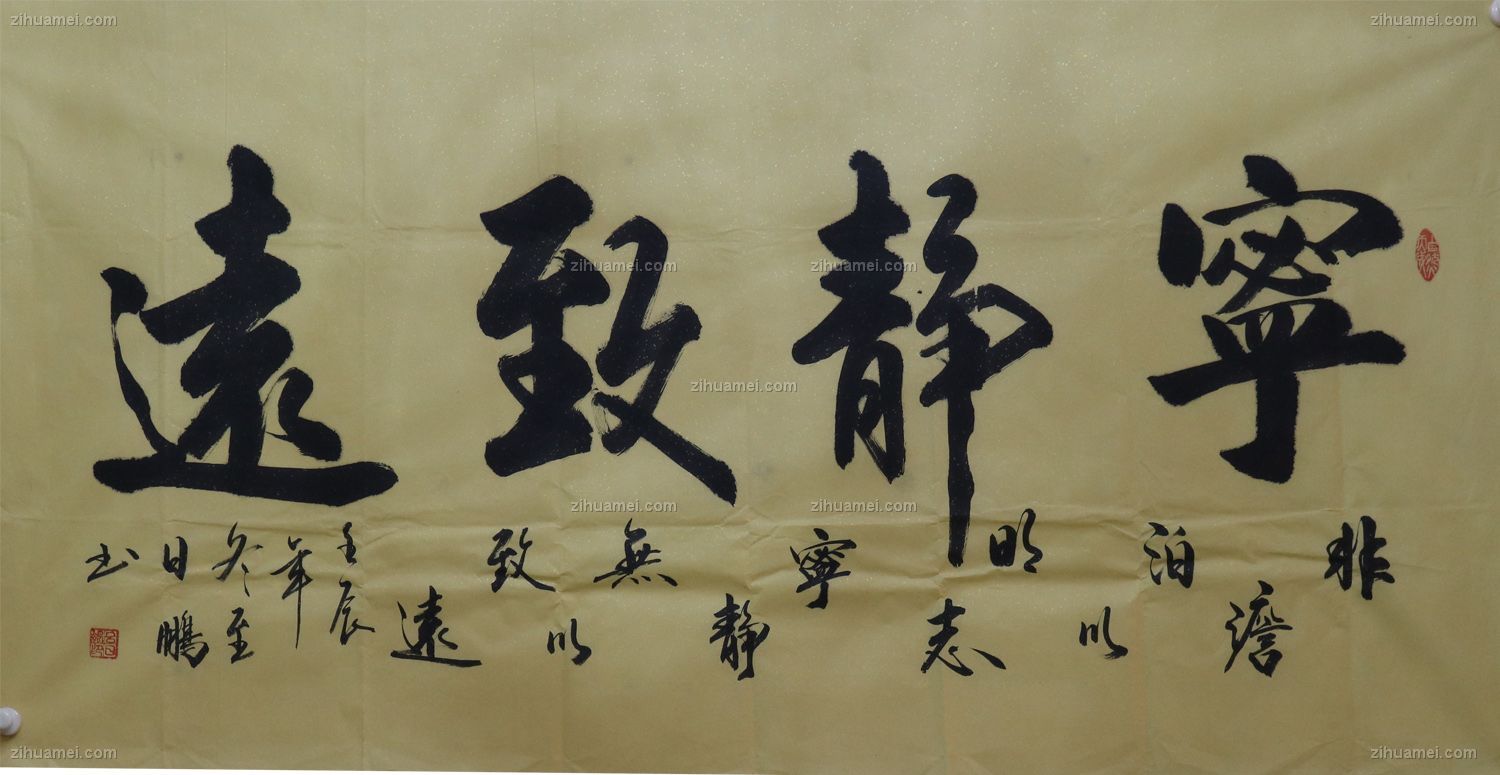 寧静致遠
非澹泊以明志寧静無以致遠
壬辰年冬至日鵬书
zihuamei.com
zihuamei.com
zihuamei.com
zihuamei.com
zihuamei.com
zihuamei.com
zihuamei.com
zihuamei.com
zihuamei.com